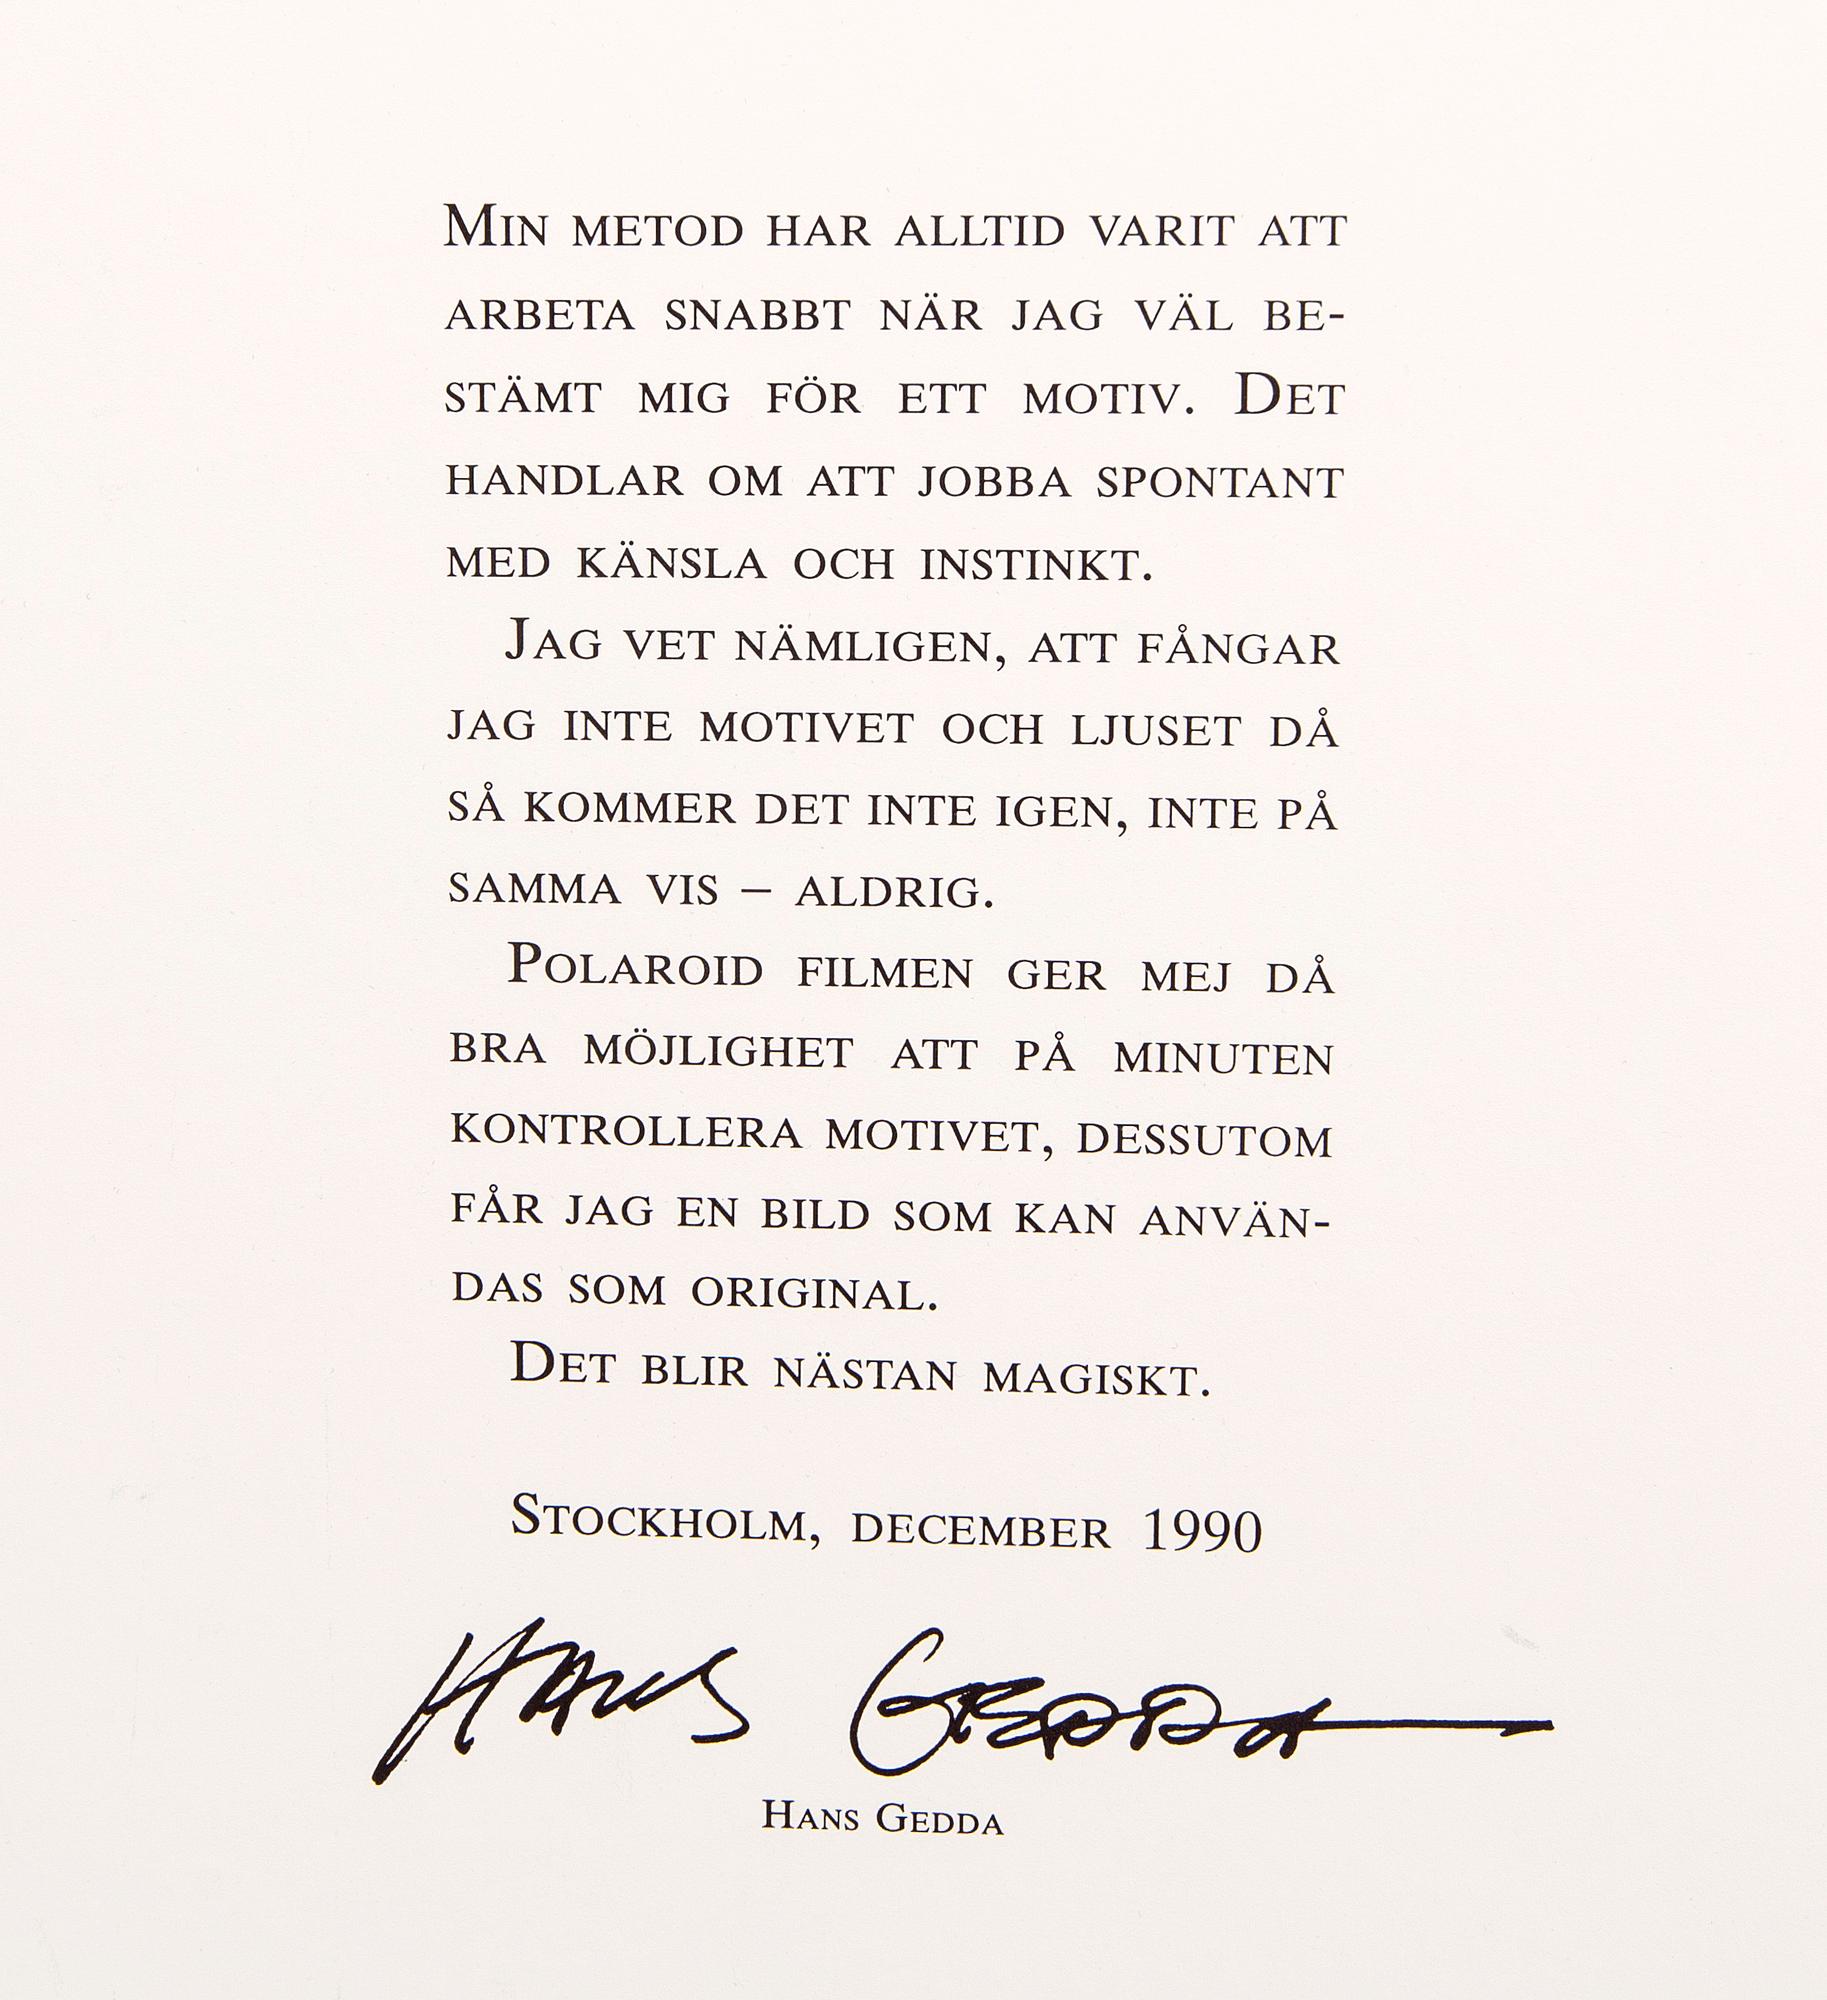 Min metod har alltid varit att
arbeta snabbt när jag väl be-
stämt mig för ett motiv. Det
handlar om att jobba spontant
med känsla och instinkt.
Jag vet nämligen, att fångar
jag inte motivet och ljuset då
så kommer det inte igen, inte på
samma vis – aldrig.
Polaroid filmen ger mej då
bra möjlighet att på minuten
kontrollera motivet, dessutom
får jag en bild som kan använ-
das som original.
Det blir nästan magiskt.
Stockholm, december 1990
Hans Gedda
Hans Gedda